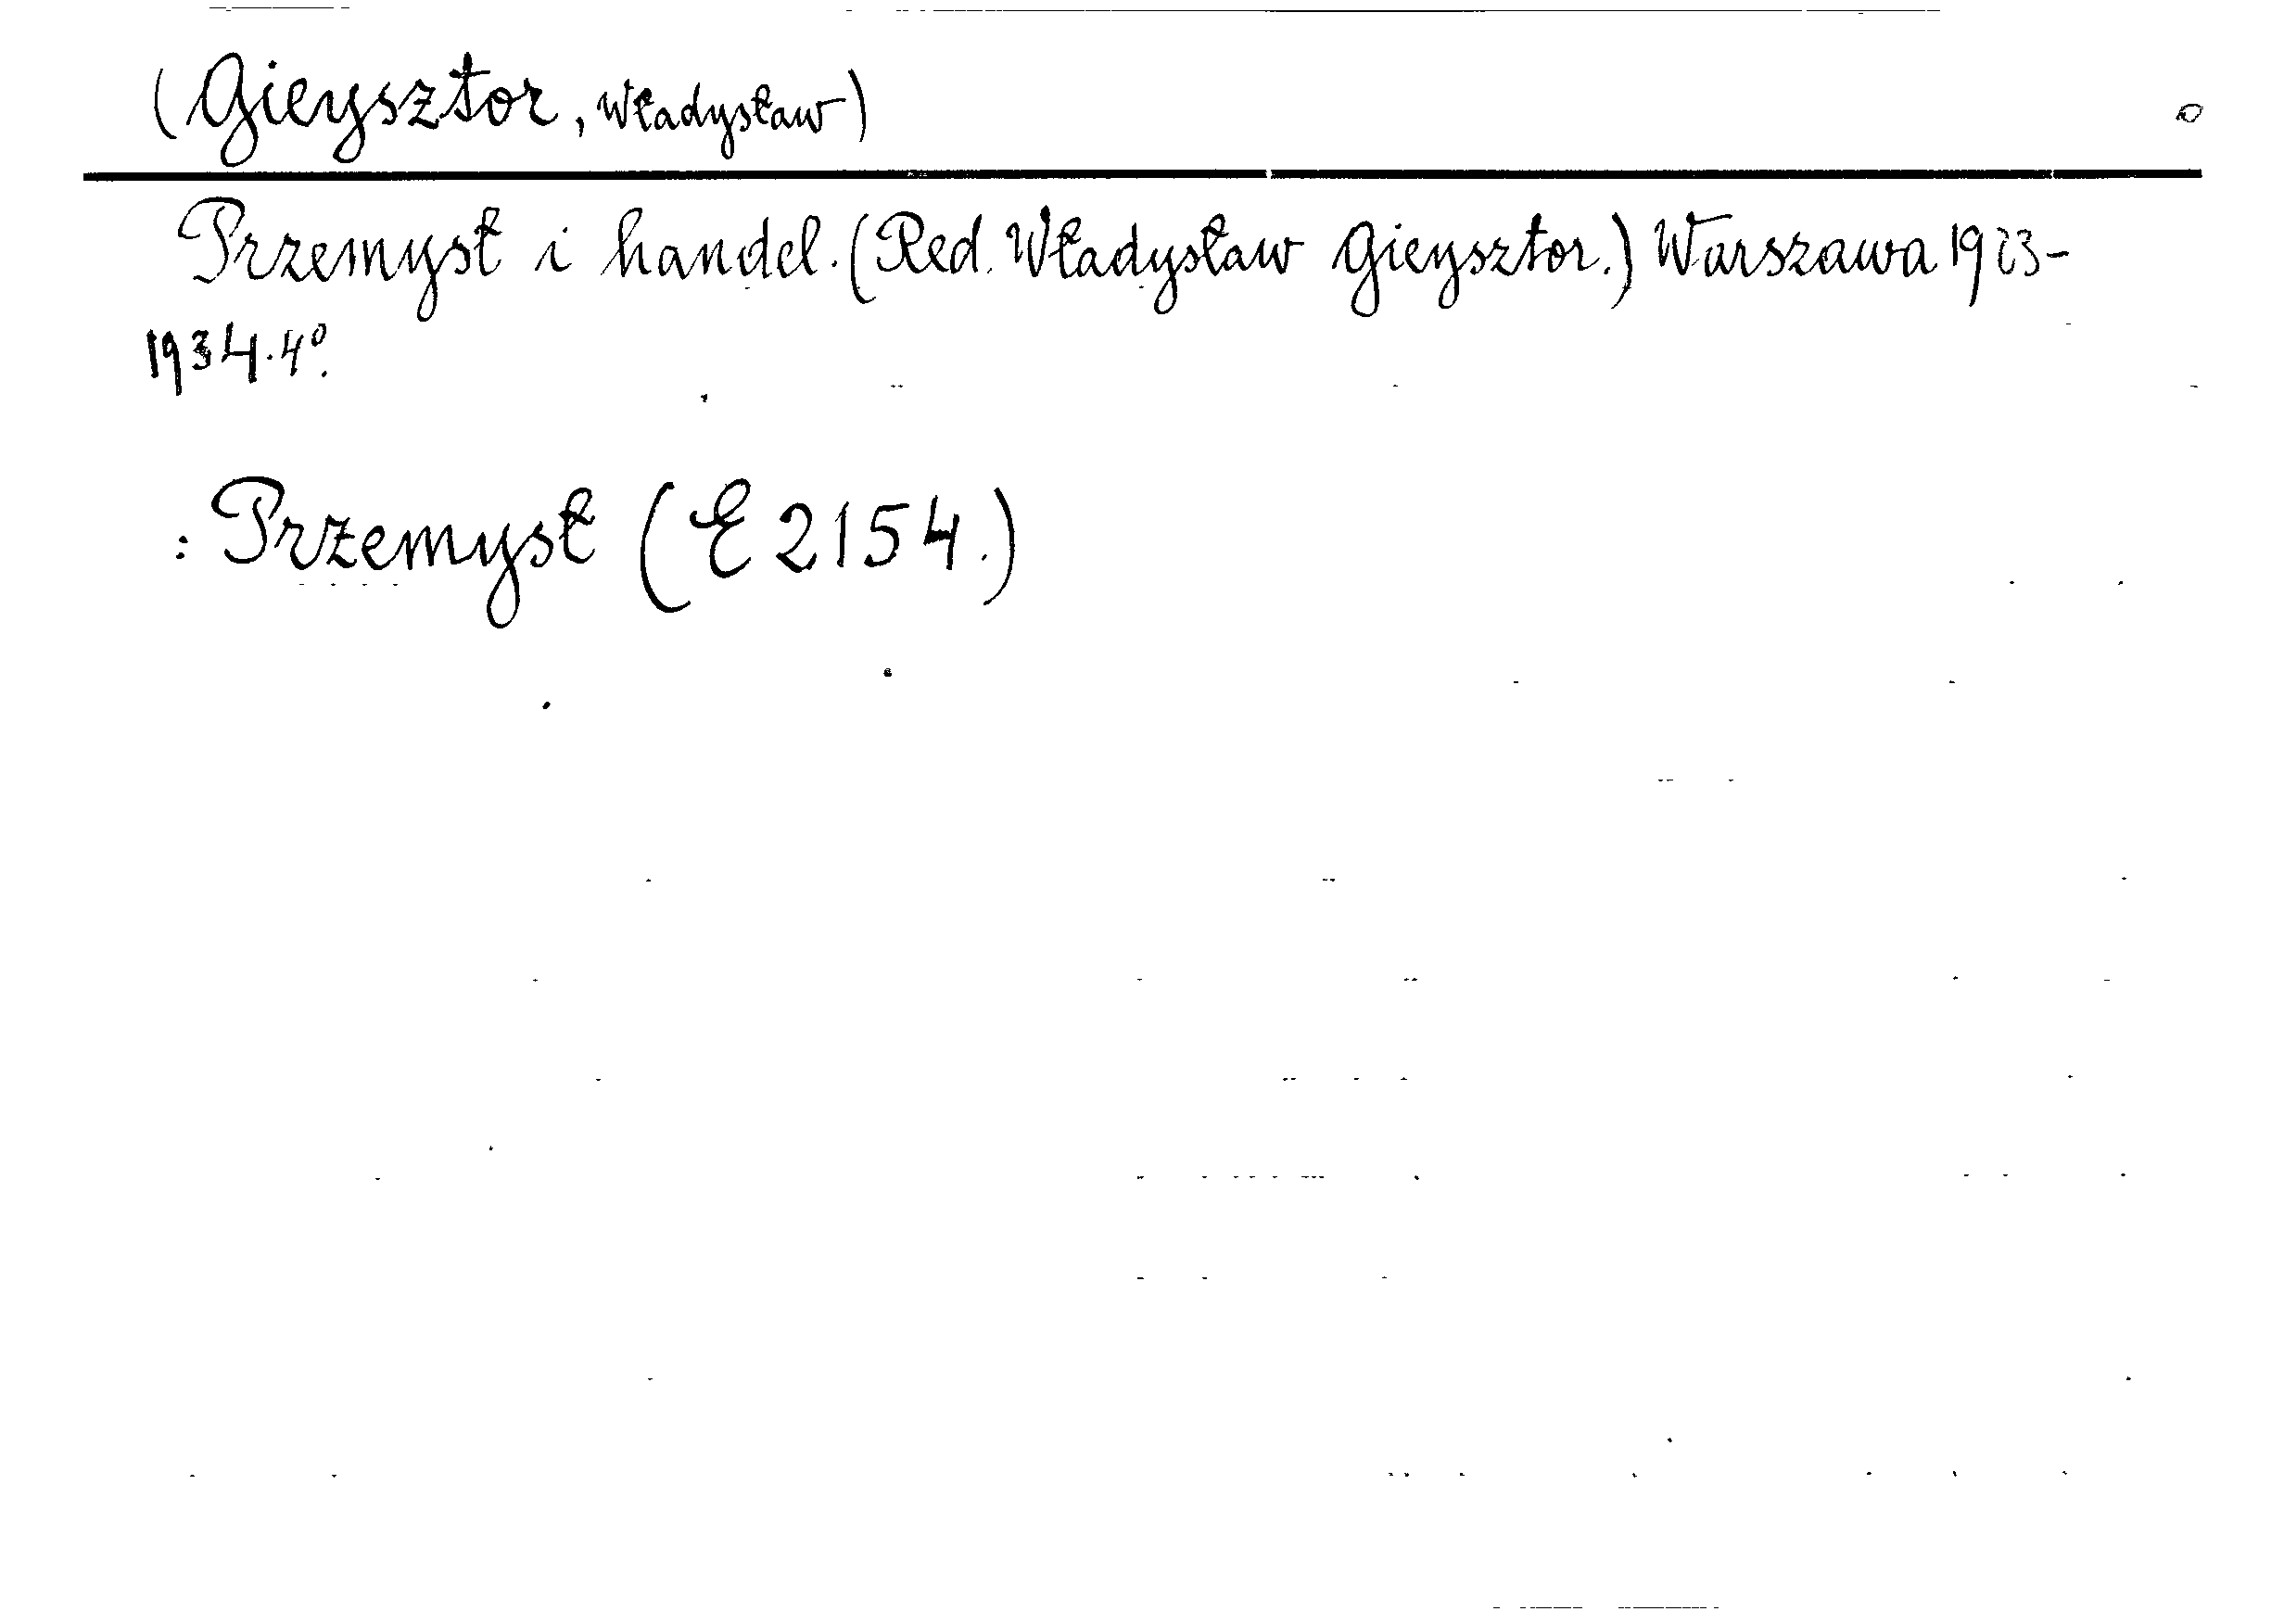 (Gieysztor, Władysław)
Przemysł i handel. (Red. Władysław Gieysztor.) Warszawa 1923-
1934. 4°.
: Przemysł (E 2154.)